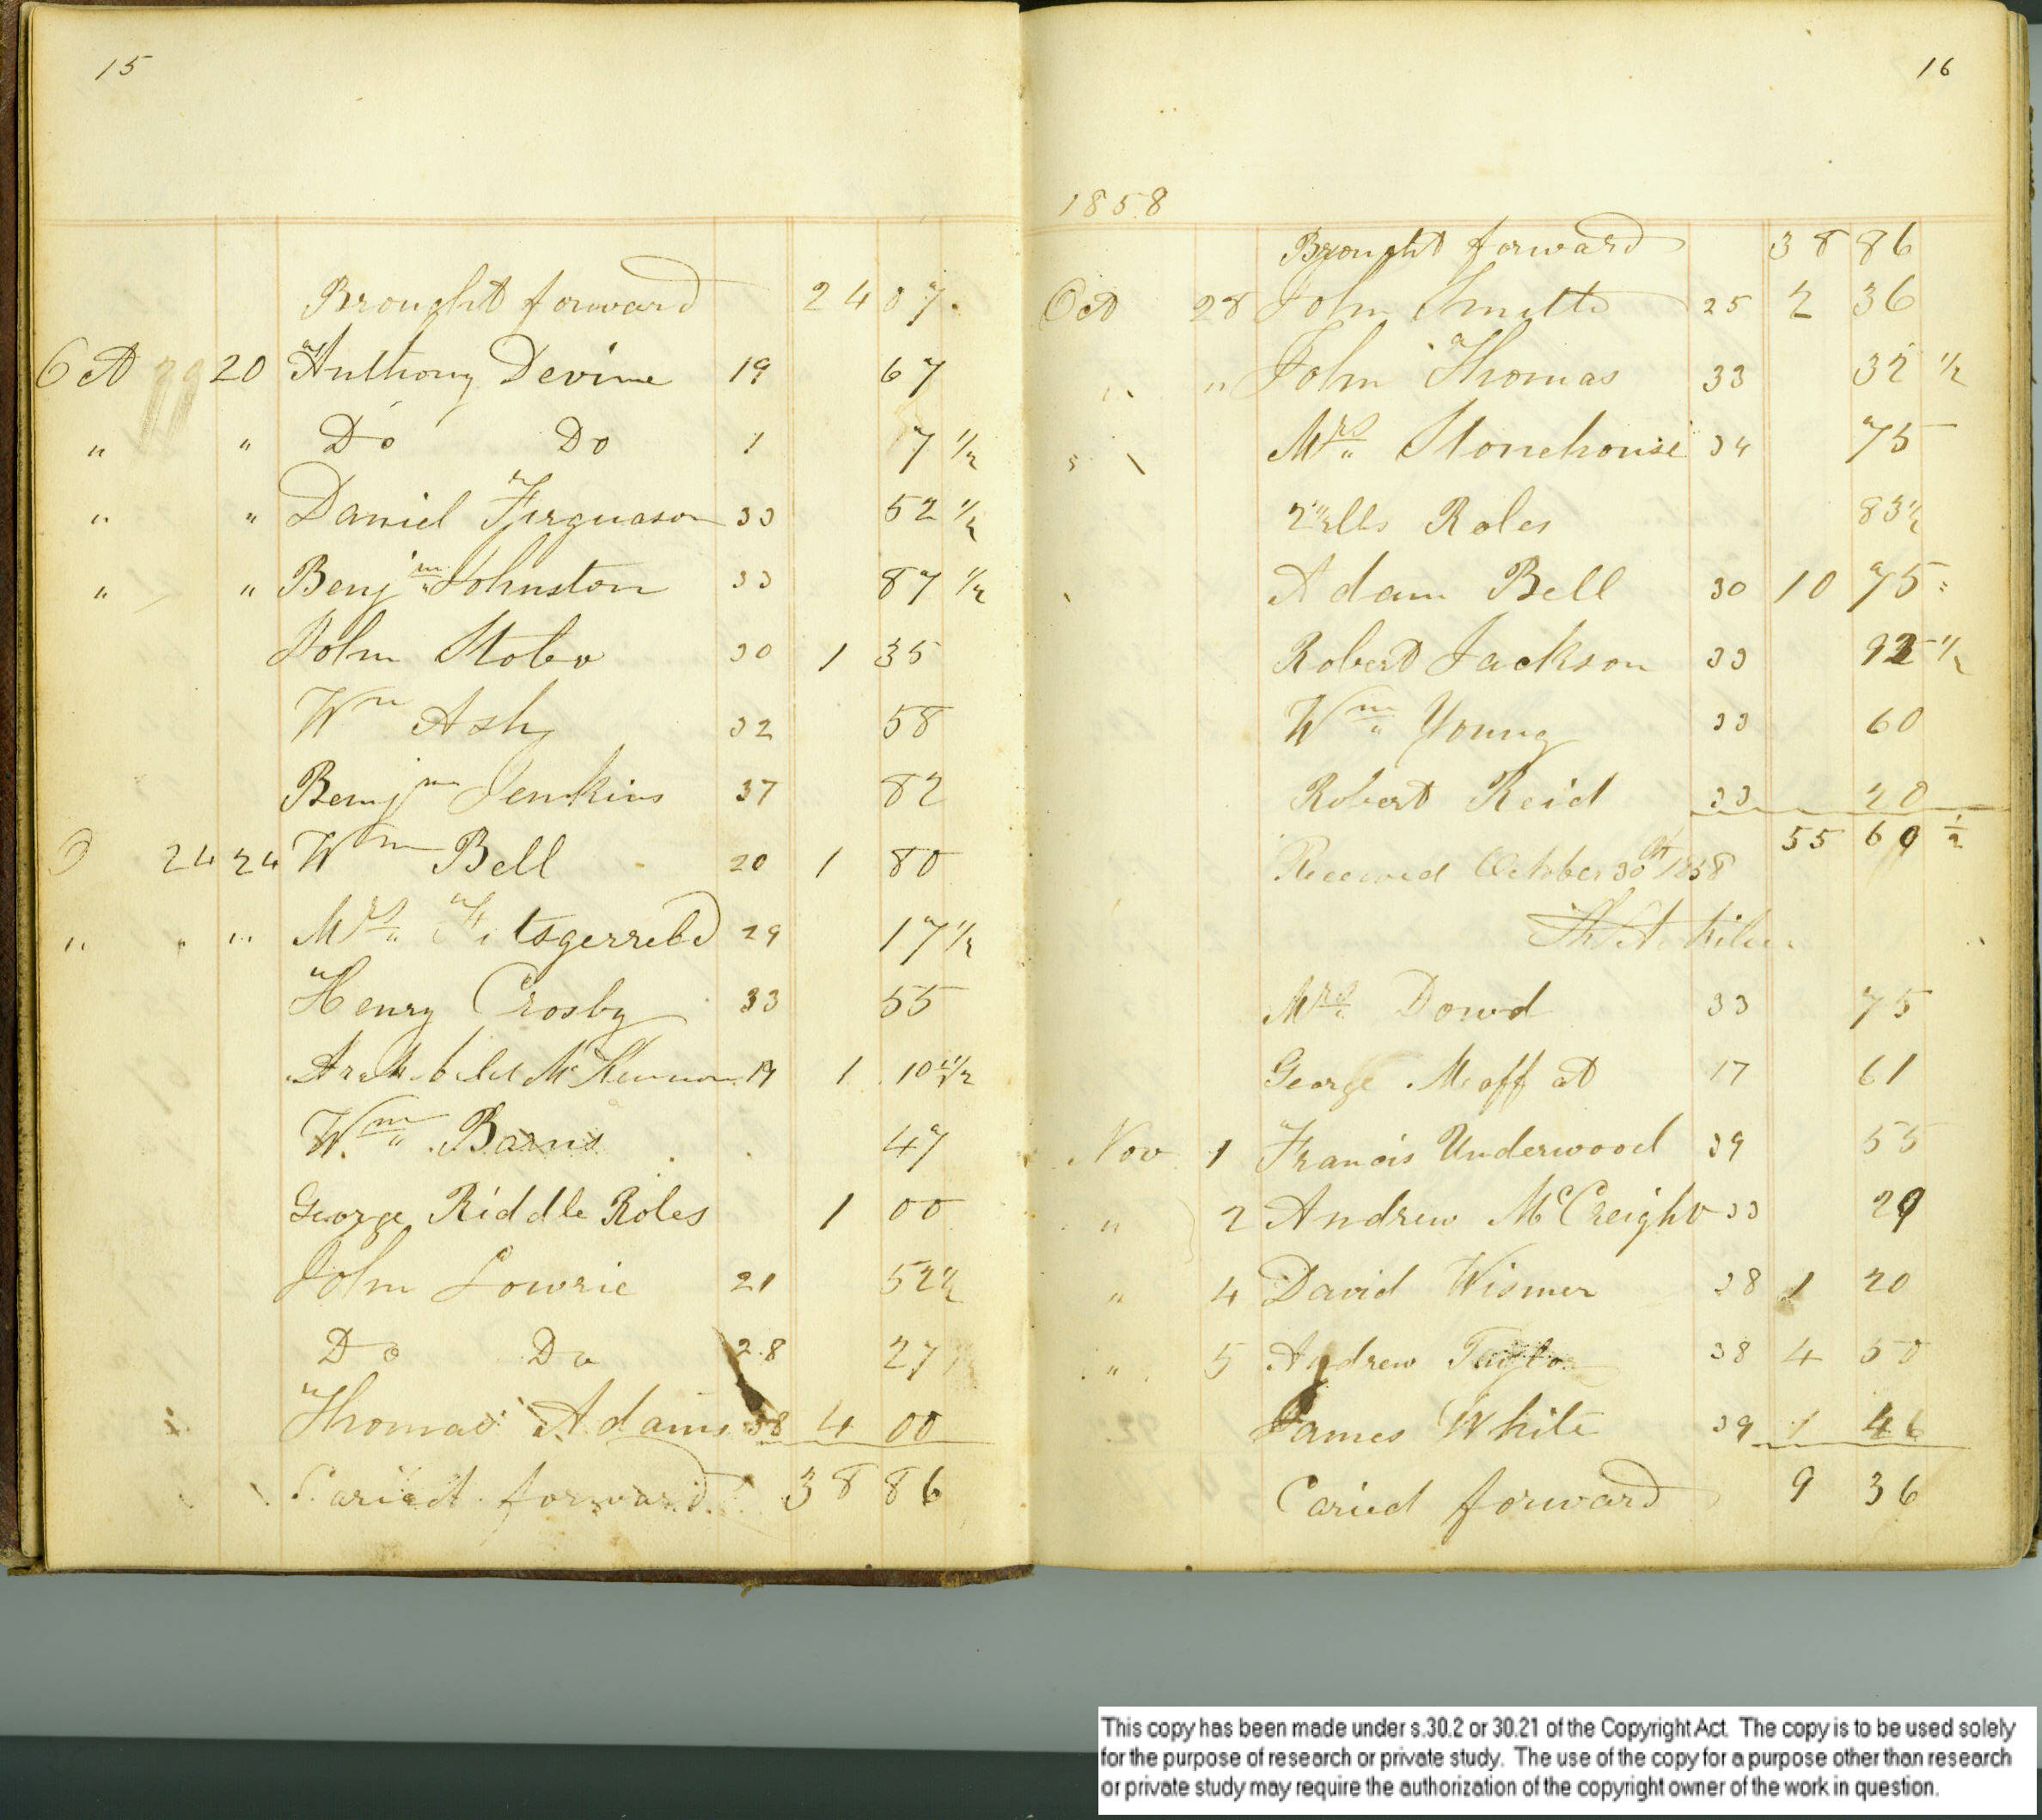 15
Brought forward 24 07
Oct 20 Anthony Devine 19 67
" " Do Do 1 7 1/2
" " Daniel Ferguason 33 52 1/2
" " Benjm Johnston 33 87 1/2
John Stobo 30 1 35
Wm Ash 32 58
Benjm Jenkins 37 82
24 24 Wm Bell 20 1 80
" " " Mrs Fitsgerreld 29 17 1/2
Henry Crosby 33 55
Mc 1 10 1/2
Wm Barns 47
George Riddle Roles 1 00
John Lowrie 21 52 1/2
Do Do 28 27
Thomas Adams 38 4 00
Caried forward 38 86
16
1858
Brought forward 38 86
Oct 28 John Smith 25 2 36
" " John Thomas 33 32 1/2
Mrs Stonehouse 34 75
Roles 83 1/2
Adam Bell 30 10 75
Robert Jackson 33 92 1/2
Wm Young 33 60
Robert Reid 33 20
55 60 1/2
Received October 30th 1858
Mrs Dowd 33 75
George Moffat 17 61
Nov 1 Francis Underwood 39 55
" 2 Andrew McCreight 33 29
" 4 David Wismer 38 1 20
" 5 Andrew Taylor 38 4 50
James White 39 1 46
Caried forward 9 36
This copy has been made under s.30.2 or 30.21 of the Copyright Act. The copy is to be used solely
for the purpose of research or private study. The use of the copy for a purpose other than research
or private study may require the authorization of the copyright owner of the work in question.